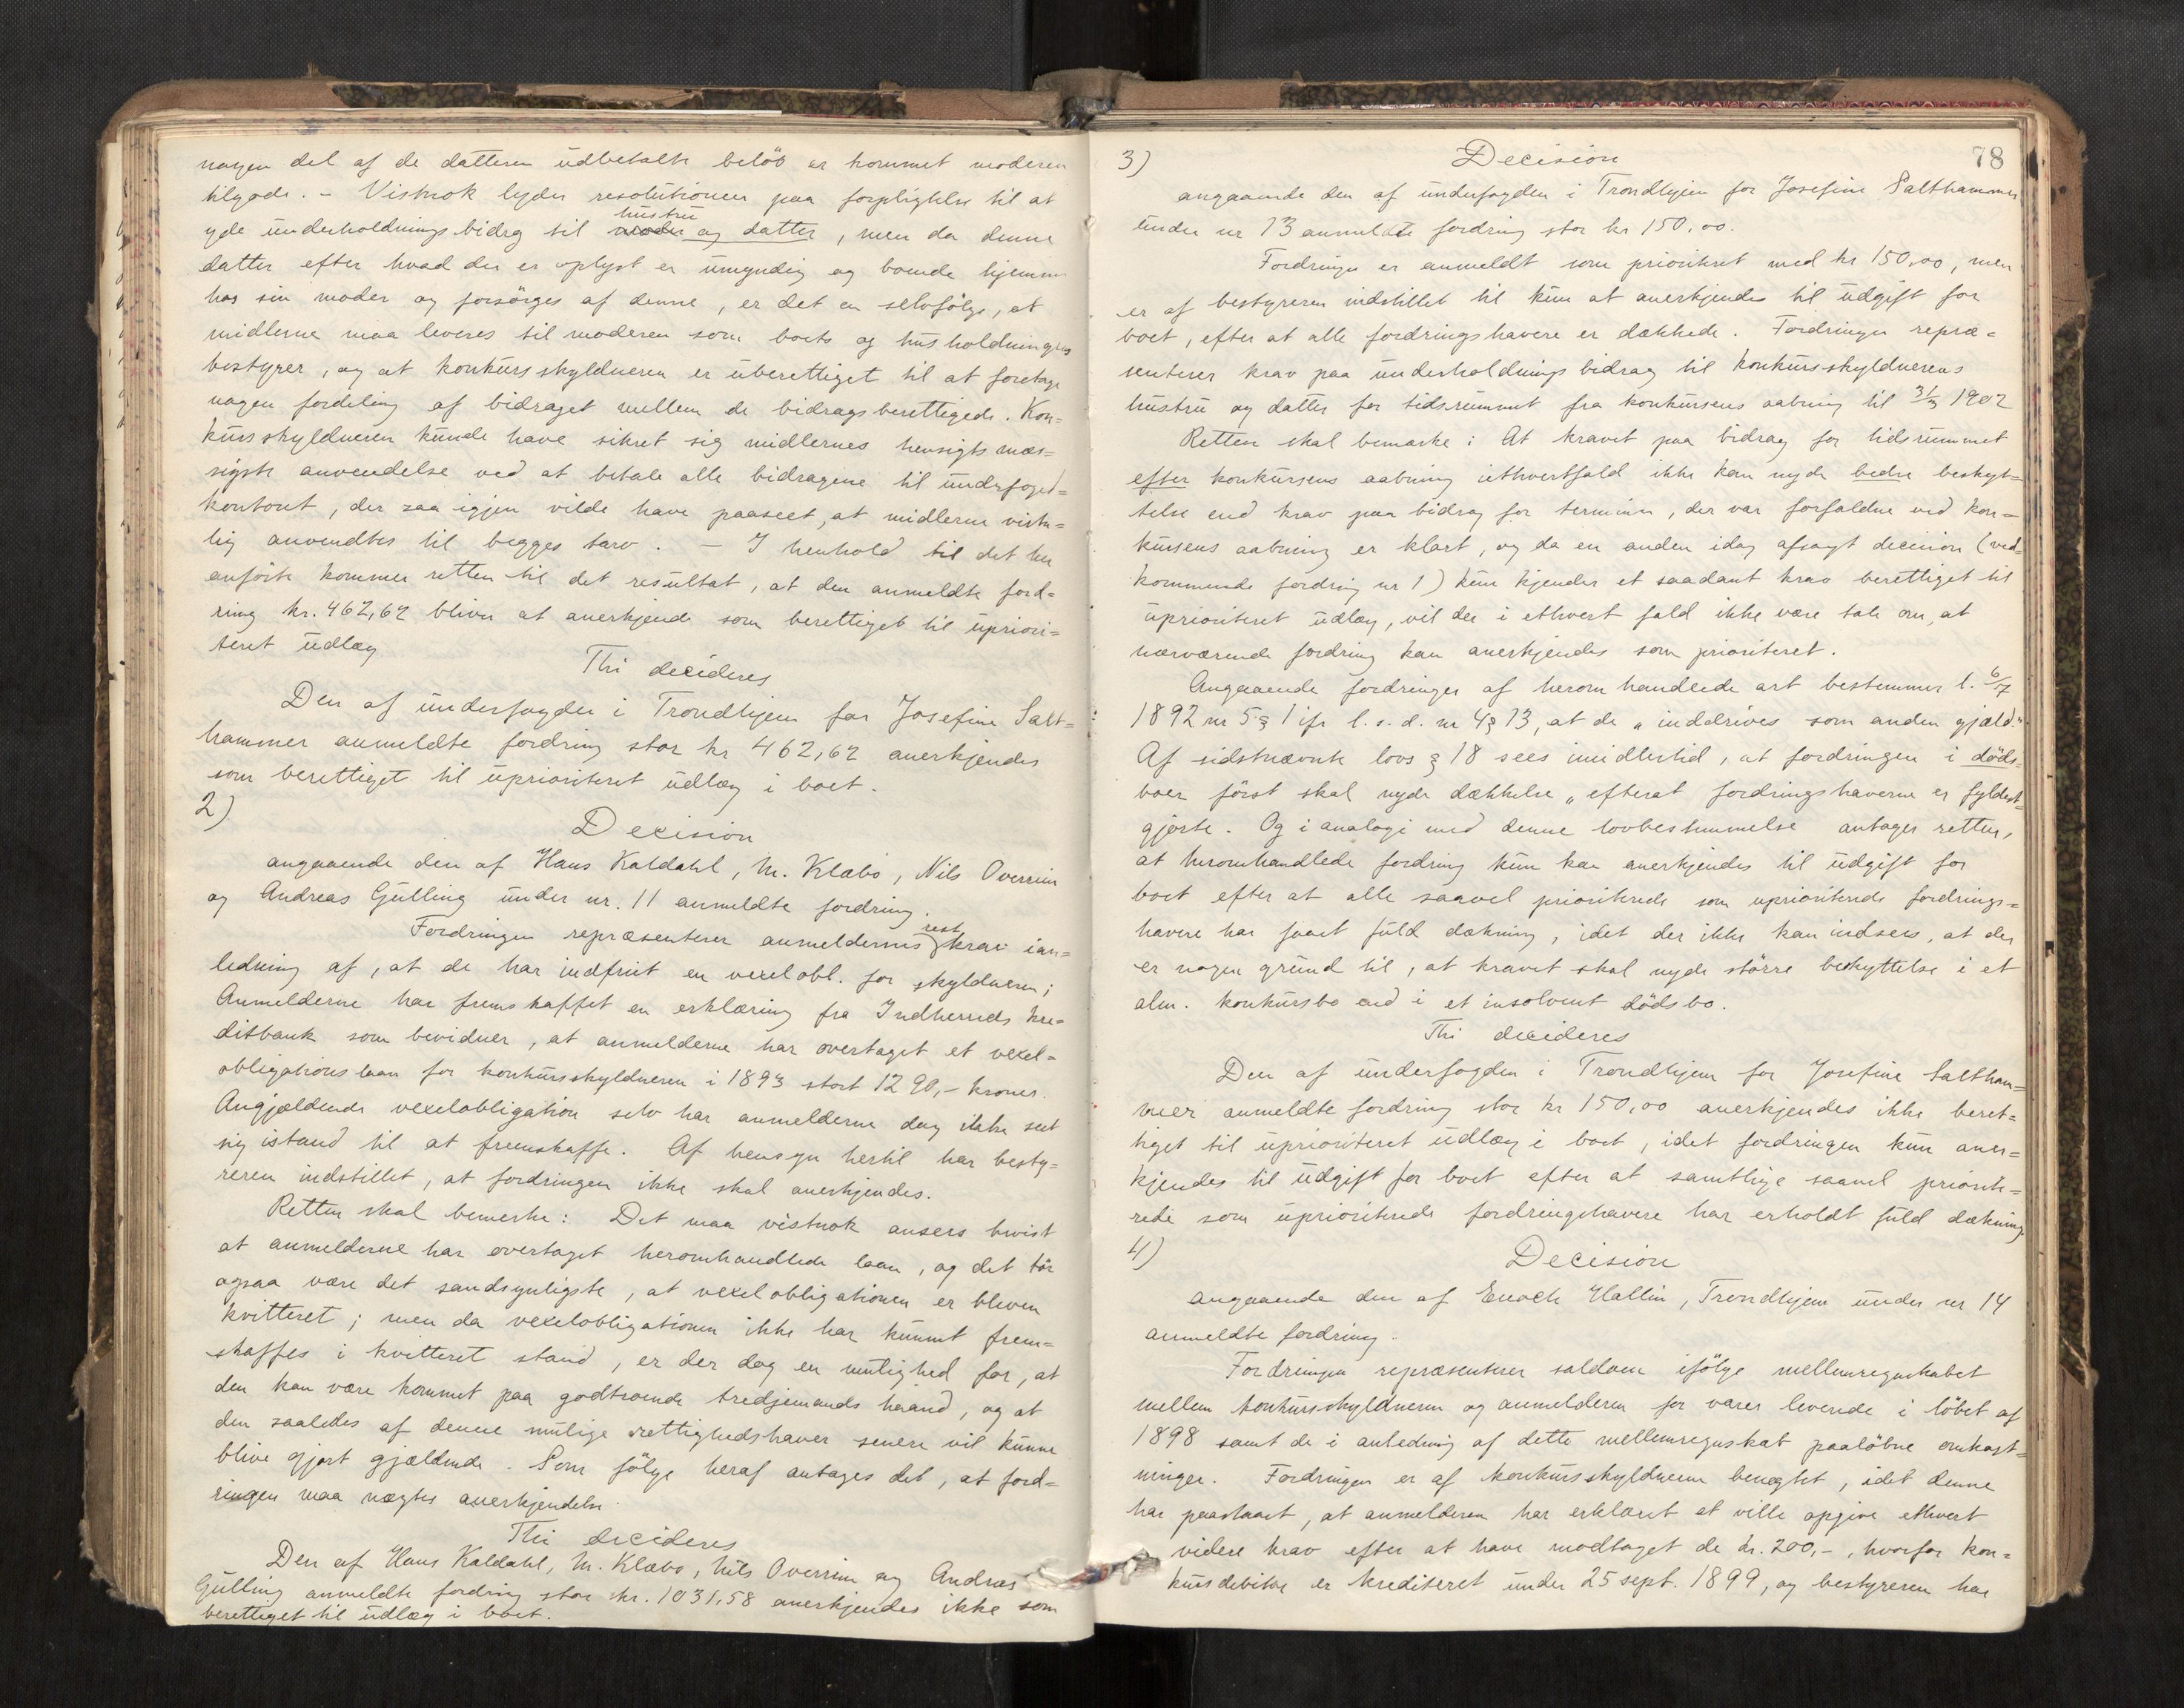 nogen del af de datteren udbetalte beløb er kommet moderen
tilgode. – Vistnok lyder resolutionen paa forpligtelse til at
hustru
yde underholdningsbidrag til moder og datter, men da denne
datter efter hvad der er oplyst er umyndig og boende hjemme
hos sin moder og forsørges af denne, er det en selvfølge, at
midlerne maa leveres til moderen som boets og husholdningens
bestyrer, og at konkursskyldneren er uberettiget til at foretage
nogen fordeling af bidraget mellem de bidragsberettigede. Kon=
kursskyldneren kunde have sikret sig midlernes hensigtsmæs=
sigste anvendelse ved at betale alle bidragene til underfoged=
kontoret, der saa igjen vilde have paaseet, at midlerne virke=
lig anvendtes til begges tarv. – I henhold til det her
anførte kommer retten til det resultat, at den anmeldte ford=
ring kr. 462,62 bliver at anerkjende som berettiget til upriori=
teret udlæg
Thi decideres
Den af underfogden i Trondhjem for Josefine Salt=
hammer anmeldte fordring stor kr 462,62 anerkjendes
som berettiget til uprioriteret udlæg i boet.
2)
Decision
angaaende den af Hans Kaldahl, M. Klæbo, Nils Overrein
og Andreas Gulling under nr. 11 anmeldte fordring.
rest
Fordringen repræsenterer anmeldernes krav ian=
ledning af, at de har indfriet en vexelobl. for skyldneren;
Anmelderne har fremskaffet en erklæring fra Indherreds kre=
ditbank som bevidner, at anmelderne har overtaget et vexel=
obligationslaan for konkursskyldneren i 1893 stort 1290,- kroner.
Angjældende vexelobligation selv har anmelderne dog ikke seet
sig istand til at fremskaffe. Af hensyn hertil har besty=
reren indstillet, at fordringen ikke skal anerkjendes.
Retten skal bemerke: Det maa vistnok ansees bevist
at anmelderne har overtaget heromhandlede laan, og det tør
ogsaa være det sandsynligste, at vexelobligationen er bleven
kvitteret; men da vexelobligationen ikke har kunnet frem=
skaffes i kvitteret stand, er der dog en mulighed for, at
den kan være kommet paa godtroende tredjemands haand, og at
den saaledes af denne mulige rettighedshaver senere vil kunne
blive gjort gjældende. Som følge heraf antages det, at ford=
ringen maa nægtes anerkjendelse.
Thi decideres
Den af Hans Kaldahl, M. Klæbo, Nils Overrein og Andreas
Gulling anmeldte fordring stor kr. 1031,58 anerkjendes ikke som
berettiget til udlæg i boet.
78
3)
Decision
angaaende den af underfogden i Trondhjem for Josefine Salthammer
under nr 13 anmeldte fordring stor kr 150,00.
Fordringen er anmeldt som prioriteret med kr 150,00, men
er af bestyreren indstillet til kun at anerkjendes til udgift for
boet, efter at alle fordringshavere er dækkede. Fordringen repræ=
senterer krav paa underholdningsbidrag til konkursskyldnerens
hustru og datter for tidsrummet fra konkursens aabning til 31/3 1902
Retten skal bemærke: At kravet paa bidrag for tidsrummet
efter konkursens aabning iethvertfald ikke kan nyde bedre beskyt=
telse end krav paa bidrag for terminer, der var forfaldne ved kon=
kursens aabning er klart, og da en anden idag afsagt decision (ved=
kommende fordring nr 1) kun kjender et saadant krav berettiget til
uprioriteret udlæg, vil der i ethvert fald ikke være tale om, at
nærværende fordring kan anerkjendes som prioriteret.
Angaaende fordringer af herom handlede art bestemmer l. 6/7
1892 nr 5 § 1 jfr l. s. d. nr 4 § 13, at de „inddrives som anden gjæld."
Af sidstnævnte lovs § 18 sees imidlertid, at fordringen i døds=
boer først skal nyde dækkelse „efterat fordringshaverne er fyldest=
gjorte. Og i analogi med denne lovbestemmelse antager retten,
at heromhandlede fordring kun kan anerkjendes til udgift for
boet efter at alle saavel prioriterede som uprioriterede fordrings=
havere har faaet fuld dækning, idet der ikke kan indsees, at der
er nogen grund til, at kravet skal nyde større beskyttelse i et
alm. konkursbo end i et insolvent dødsbo.
Thi decideres
Den af underfogden i Trondhjem for Josefine Saltham=
mer anmeldte fordring stor kr 150,00 anerkjendes ikke beret=
tiget til uprioriteret udlæg i boet, idet fordringen kun aner=
kjendes til udgift for boet efter at samtlige saavel priorite=
rede som uprioriterede fordringshavere har erholdt fuld dækning.
4)
Decision
angaaende den af Enoch Hallin, Trondhjem under nr 14
anmeldte fordring.
Fordringen repræsenterer saldoen ifølge mellemregnskabet
mellem konkursskyldneren og anmelderen for varer leverede i løbet af
1898 samt de i anledning af dette mellemregnskab paaløbne omkost=
ninger. Fordringen er af konkursskyldneren benegtet, idet denne
har paastaaet, at anmelderen har erklæret at ville opgive ethvert
videre krav efter at have modtaget de kr. 200,-, hvorfor kon=
kursdebitor er krediteret under 25 sept. 1899, og bestyreren har